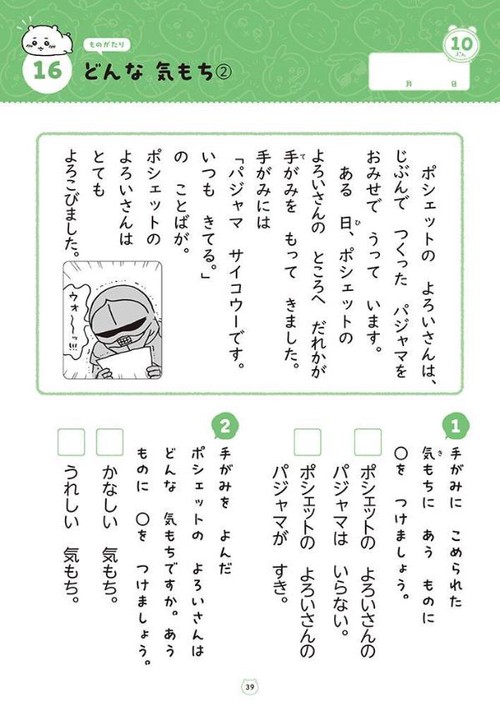 ものがたり
16
どんな 気もち②
10
ぷん
月 日
ポシェットの よろいさんは、
じぶんで つくった パジャマを
おみせで うって います。
ある 日、ポシェットの
ひ
よろいさんの ところへ だれかが
手がみを もって きました。
て
手がみには
「パジャマ サイコウーです。
いつも きてる。」
の ことばが。
ポシェットの
よろいさんは
とても
よろこびました。
ウォ〜ッ!!!
1
手がみに こめられた
気もちに あう ものに
き
〇を つけましょう。
ポシェットの よろいさんの
パジャマは いらない。
ポシェットの よろいさんの
パジャマが すき。
2
手がみを よんだ
ポシェットの よろいさんは
どんな 気もちですか。あう
ものに 〇を つけましょう。
かなしい 気もち。
うれしい 気もち。
39